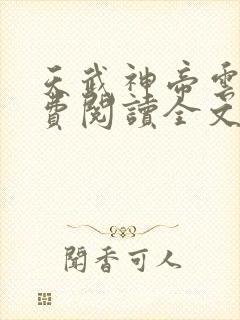 天武神帝雲
費閱讀全文
聞香可人